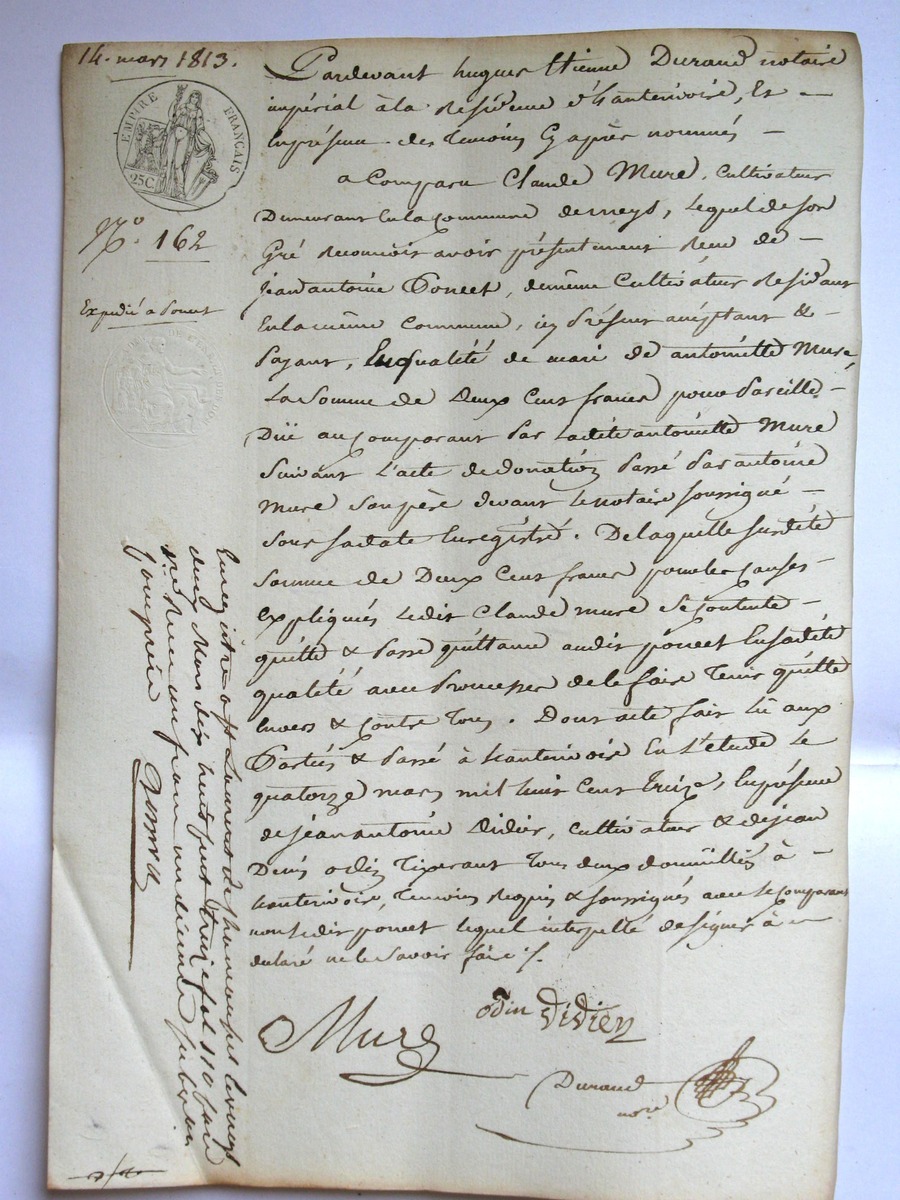 14. mars 1813.
EMPIRE FRANÇAIS
25C
N.o 162
Expedié a Poncet
Pardevant hugues Etienne Durand notaire
impérial à la Residence d'hauterivoire, Et –
Enprésence des temoins Cy après nommés –
a Comparu Claude Mure, Cultivateur
Demeurant Enla Commune demeys, lequel deson
Gré Reconnoit avoir présentement Recu de –
jeanantoine Poncet, demême Cultivateur Residant
Enlamême Commune, icy Présent acceptant &
Payant, Enqualité de mari de antoinette Mure
La Somme de Deux Cent francs pour Pareille –
Düe au Comparant Par Ladite antoinette Mure
Suivant L'acte dedonation Passé Par antoine
Mure Sonpère devant Lenotaire Soussigné –
Sous sadate Enregistré. Delaquelle susdite
Somme de Deux Cent francs pour les causes
expliquées Ledit Claude mure Se Contente –
quitte & Passe quittance audit poncet Ensadite
qualité avec Promesse de le faire tenir quitte
Envers & Contre tous. Dont acte fait Lû aux
Parties & Passé à hauterivoire En L'etude Le
quatorze mars mil huit Cent treize, Enprésence
de jeanantoine Didier, cultivateur & dejean
Denis odin tixerant tous deux domiciliés à –
hauterivoire, temoins Requis & Soussignés avec le Comparant
non Ledit poncet lequel interpellé designer à –
declaré ne le Savoir faire ./.
Mure
odin Didier
Durand
nore
Enregistré a St Laurent de chamousset le vingt
deux mars dix huit cent treize fol 110
Recu un franc
compris